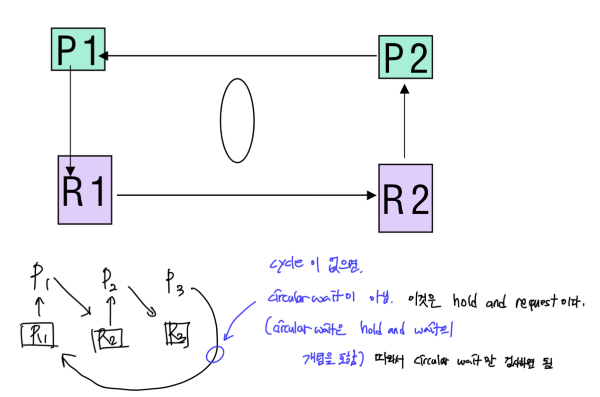 P1
P2
R1
R2
P1 P2 P3
R1 R2 R3
cycle이 없으면,
circular wait이 아님. 이것은 hold and request이다.
(circular wait은 hold and wait의
개념을 포함) 따라서 circular wait만 검사하면 됨